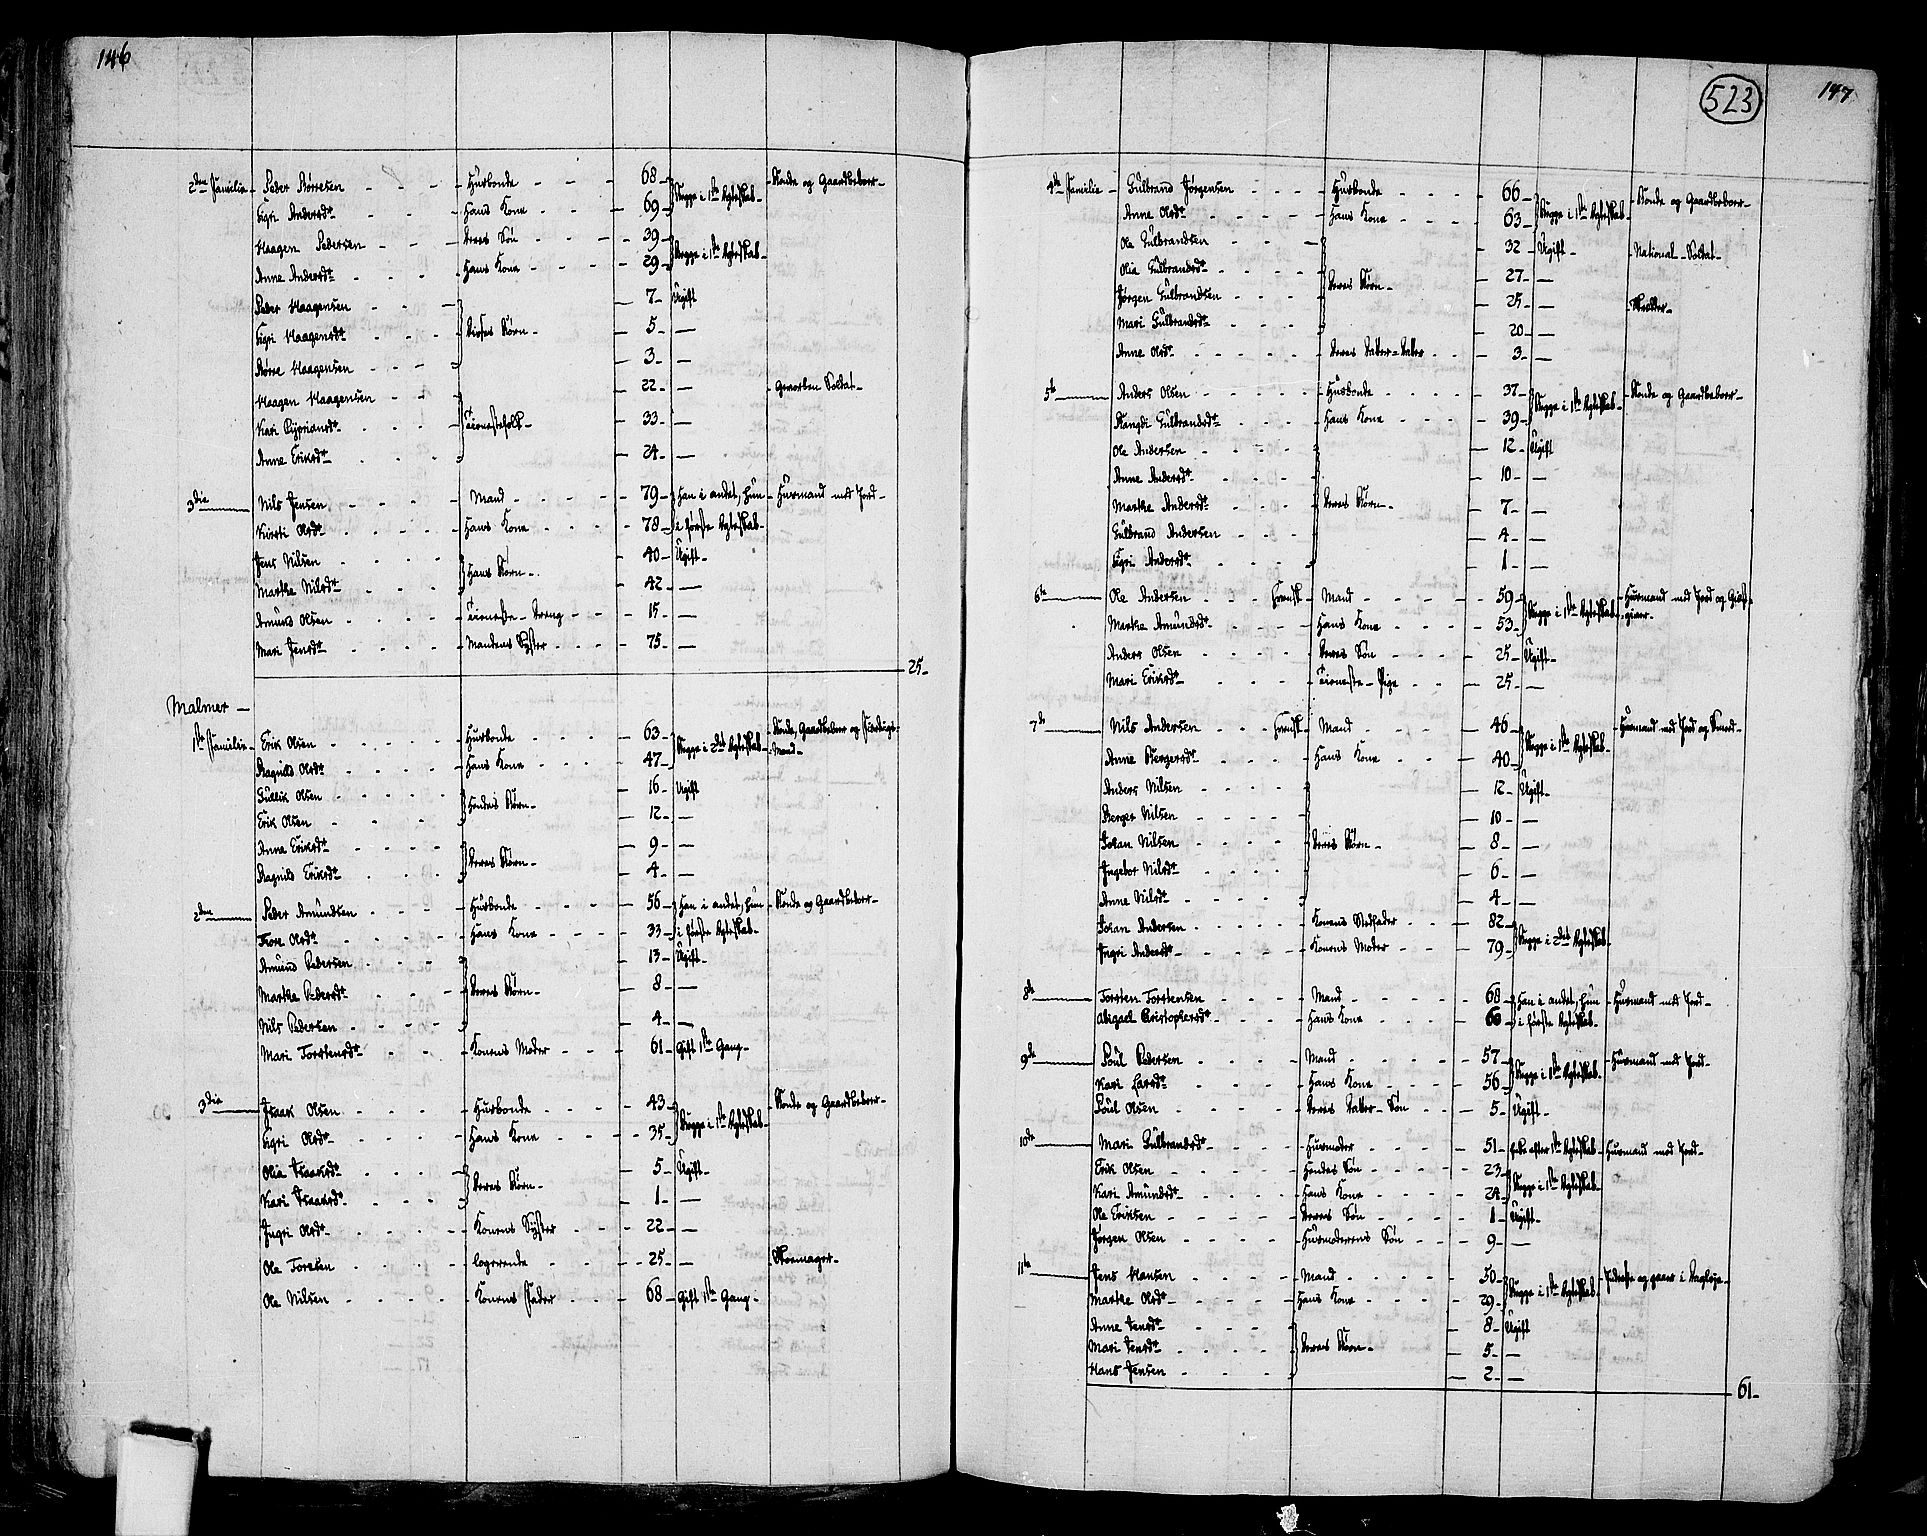 146
2den Familie - Peder Børresen - Husbonde - 68 - Begge i 1ste Ægteskab - Bonde og Gaardbeboer -
Sigri Andersdt - Hans Kone - 69 -
Haagen Pedersen - Deres Søn - 39 - Begge i 1ste Ægteskab -
Anne Andersdt - Hans Kone - 29 -
Peder Haagensen - Disses Børn - 7 - Ugift
Sigri Haagensdt - 5 - —
Børre Haagensen - 3 - —
Haagen Haagensen - Tienestefolk - 22 - — - Geworben Soldat -
Kari Cypriansdt - 33 - —
Anne Eriksdt - 24 - —
3die — Nils Jensen - Mand - 79 - Han i andet, hun - Huusmand med Jord -
Kirsti Olsdt - Hans Kone - 78 - i første Ægteskab -
Jens Nilsen - Hans Børn - 40 - Ugift -
Marthe Nilsdt - 42 - —
Amund Olsen - Tieneste-Dreng - 15 - —
Mari Jensdt - Mandens Syster - 75 - —
25 -
Malmer —
1ste Familie - Erik Olsen - Husbonde - 63 - Begge i 2det Ægteskab - Bonde, Gaardbeboer og
Ragnild Olsdt - Hans Kone - 47 - Mand -
Gullik Olsen - Hendes Børn - 16 - Ugift
Erik Olsen - 12 - —
Anne Eriksdt - Deres Børn - 9 - —
Ragnild Eriksdt - 4 - —
2den — Peder Amundsen - Husbonde - 56 - Han i andet, hun - Bonde og Gaardbeboer -
Tore Olsdt - Hans Kone - 33 - i første Ægteskab -
Amund Pedersen - Deres Børn - 13 - Ugift -
Marthe Pedersdt - 8 - —
Nils Pedersen - 4 - —
Mari Torstensdt - Konens Moder - 61 - Gift 1ste Gang -
3die — Isaak Olsen - Husbonde - 43 - Begge i 1ste Ægteskab - Bonde og Gaardbeboer -
Sigri Olsdt - Hans Kone - 35 -
Olia Isaaksdt - Deres Børn - 5 - Ugift -
Kari Isaaksdt - 1 - —
Ingri Olsdt - Konens Syster - 22 - —
Ole Torsten - Logerende - 25 - — - Skoemager -
Ole Nilsen - Konens Fader - 68 - Gift 1ste Gang -
523
147
4de Familie - Gulbrand Jørgensen - Husbonde - 66 - Begge i 1ste Ægteskab - Bonde og Gaardbeboer -
Anne Olsdt - Hans Kone - 63 -
Ole Gulbrandsen - Deres Børn - 32 - Ugift - National-Soldat -
Olia Gulbrandsdt - 27 - —
Jørgen Gulbrandsen - 25 - — - Skræder -
Mari Gulbrandsdt - 20 - —
Anne Olsdt - Deres Datter-Datter - 3 - —
5te — Anders Olsen - Husbonde - 37 - Begge i 1ste Ægteskab - Bonde og Gaardbeboer -
Rangdi Gulbrandsdt - Hans Kone - 39 -
Ole Andersen - Deres Børn - 12 - Ugift
Anne Andersdt - 10 - —
Marthe Andersdt - 7 - —
Gulbrand Andersen - 4 - —
Sigri Andersdt - 1 - —
6te — Ole Andersen - Mand - 59 - Begge i 1ste Ægteskab - Huusmand med Jord og
Marthe Amundsdt - Hans Kone - 53 -
Anders Olsen - Deres Søn - 25 - Ugift -
Mari Eriksdt - Tieneste-Pige - 25 - —
7de — Nils Andersen - Mand - 46 - Begge i 1ste Ægteskab - Huusmand med Jord og Smed -
Anne Bergersdt - Hans Kone - 40 -
Anders Nilsen - Deres Børn - 12 - Ugift -
Berger Nilsen - 10 - —
Johan Nilsen - 8 - —
Ingebor Nilsdt - 6 - —
Anne Nilsdt - 4 - —
Johan Andersen - Konens Stedfader - 82 - Begge i 2det Ægteskab -
Ingri Andersdt - Konens Moder - 79 -
8de — Torsten Torstensen - Mand - 68 - Han i andet, hun - Huusmand med Jord -
Abigael Christophersdt - Hans Kone - 60 - i første Ægteskab -
9de — Poul Pedersen - Mand - 57 - Begge i 1ste Ægteskab - Huusmand med Jord -
Kari Larsdt - Hans Kone - 56 -
Poul Olsen - Deres Datter-Søn - 5 - Ugift -
10de — Mari Gulbrandsdt - Husmoder - 51 - Enke efter 1ste Ægteskab - Huusmand med Jord -
Erik Olsen - Hendes Søn - 23 - Begge i 1ste Ægteskab -
Kari Amundsdt - Hans Kone - 24 -
Ole Eriksen - Deres Søn - 1 - Ugift -
Jørgen Olsen - Husmoderens Søn - 9 - —
11te — Jens Hansen - Mand - 30 - Begge i 1ste Ægteskab - Inderste og gaaer i Dagleje -
Marthe Olsdt - Hans Kone - 29 -
Anne Jensdt - Deres Børn - 8 - Ugift
Mari Jensdt - 5 - —
Hans Jensen - 2 - —
61 -